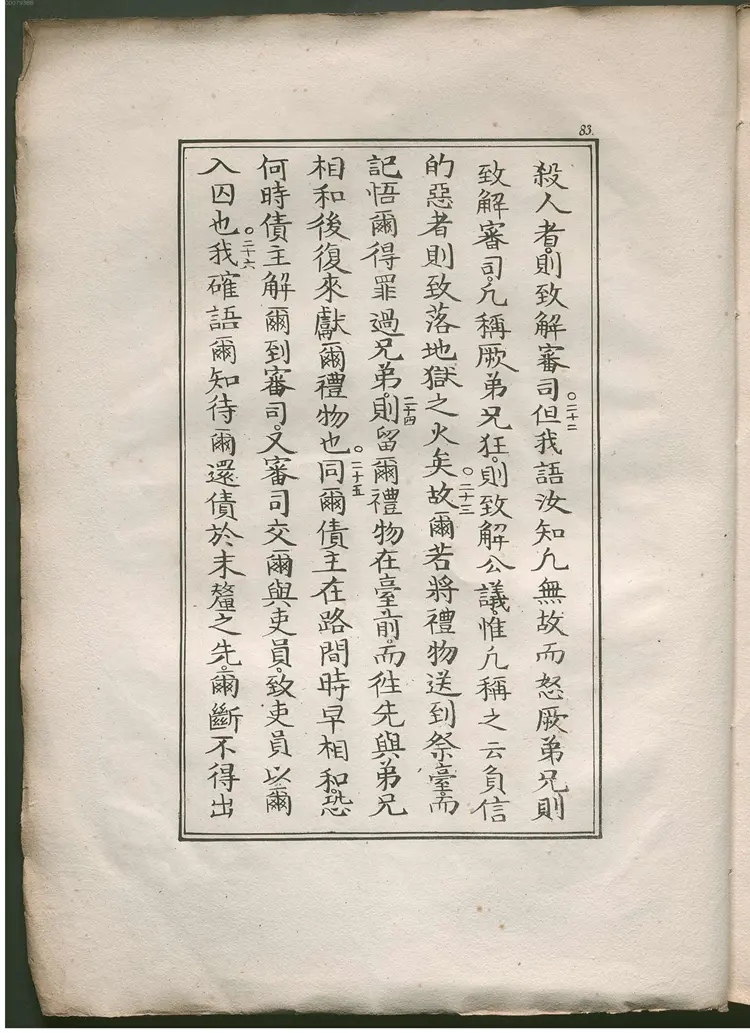 00079369
83.
殺人者。則致解審司。二十二但我語汝知凢無故而怒厥弟兄則
致解審司。凢稱厥弟兄狂。則致解公議。惟凢稱之云負信
的惡者則致落地獄之火矣。二十三故爾若將禮物送到祭臺。而
記悟爾得罪過兄弟。二十四則留爾禮物在臺前。而徃先與弟兄
相和後復來獻爾禮物也。二十五同爾債主在路間時早相和。恐
何時債主解爾到審司。又審司交爾與吏員。致吏員以爾
入囚也。二十六我確語爾知待爾還債於末釐之先。爾斷不得出